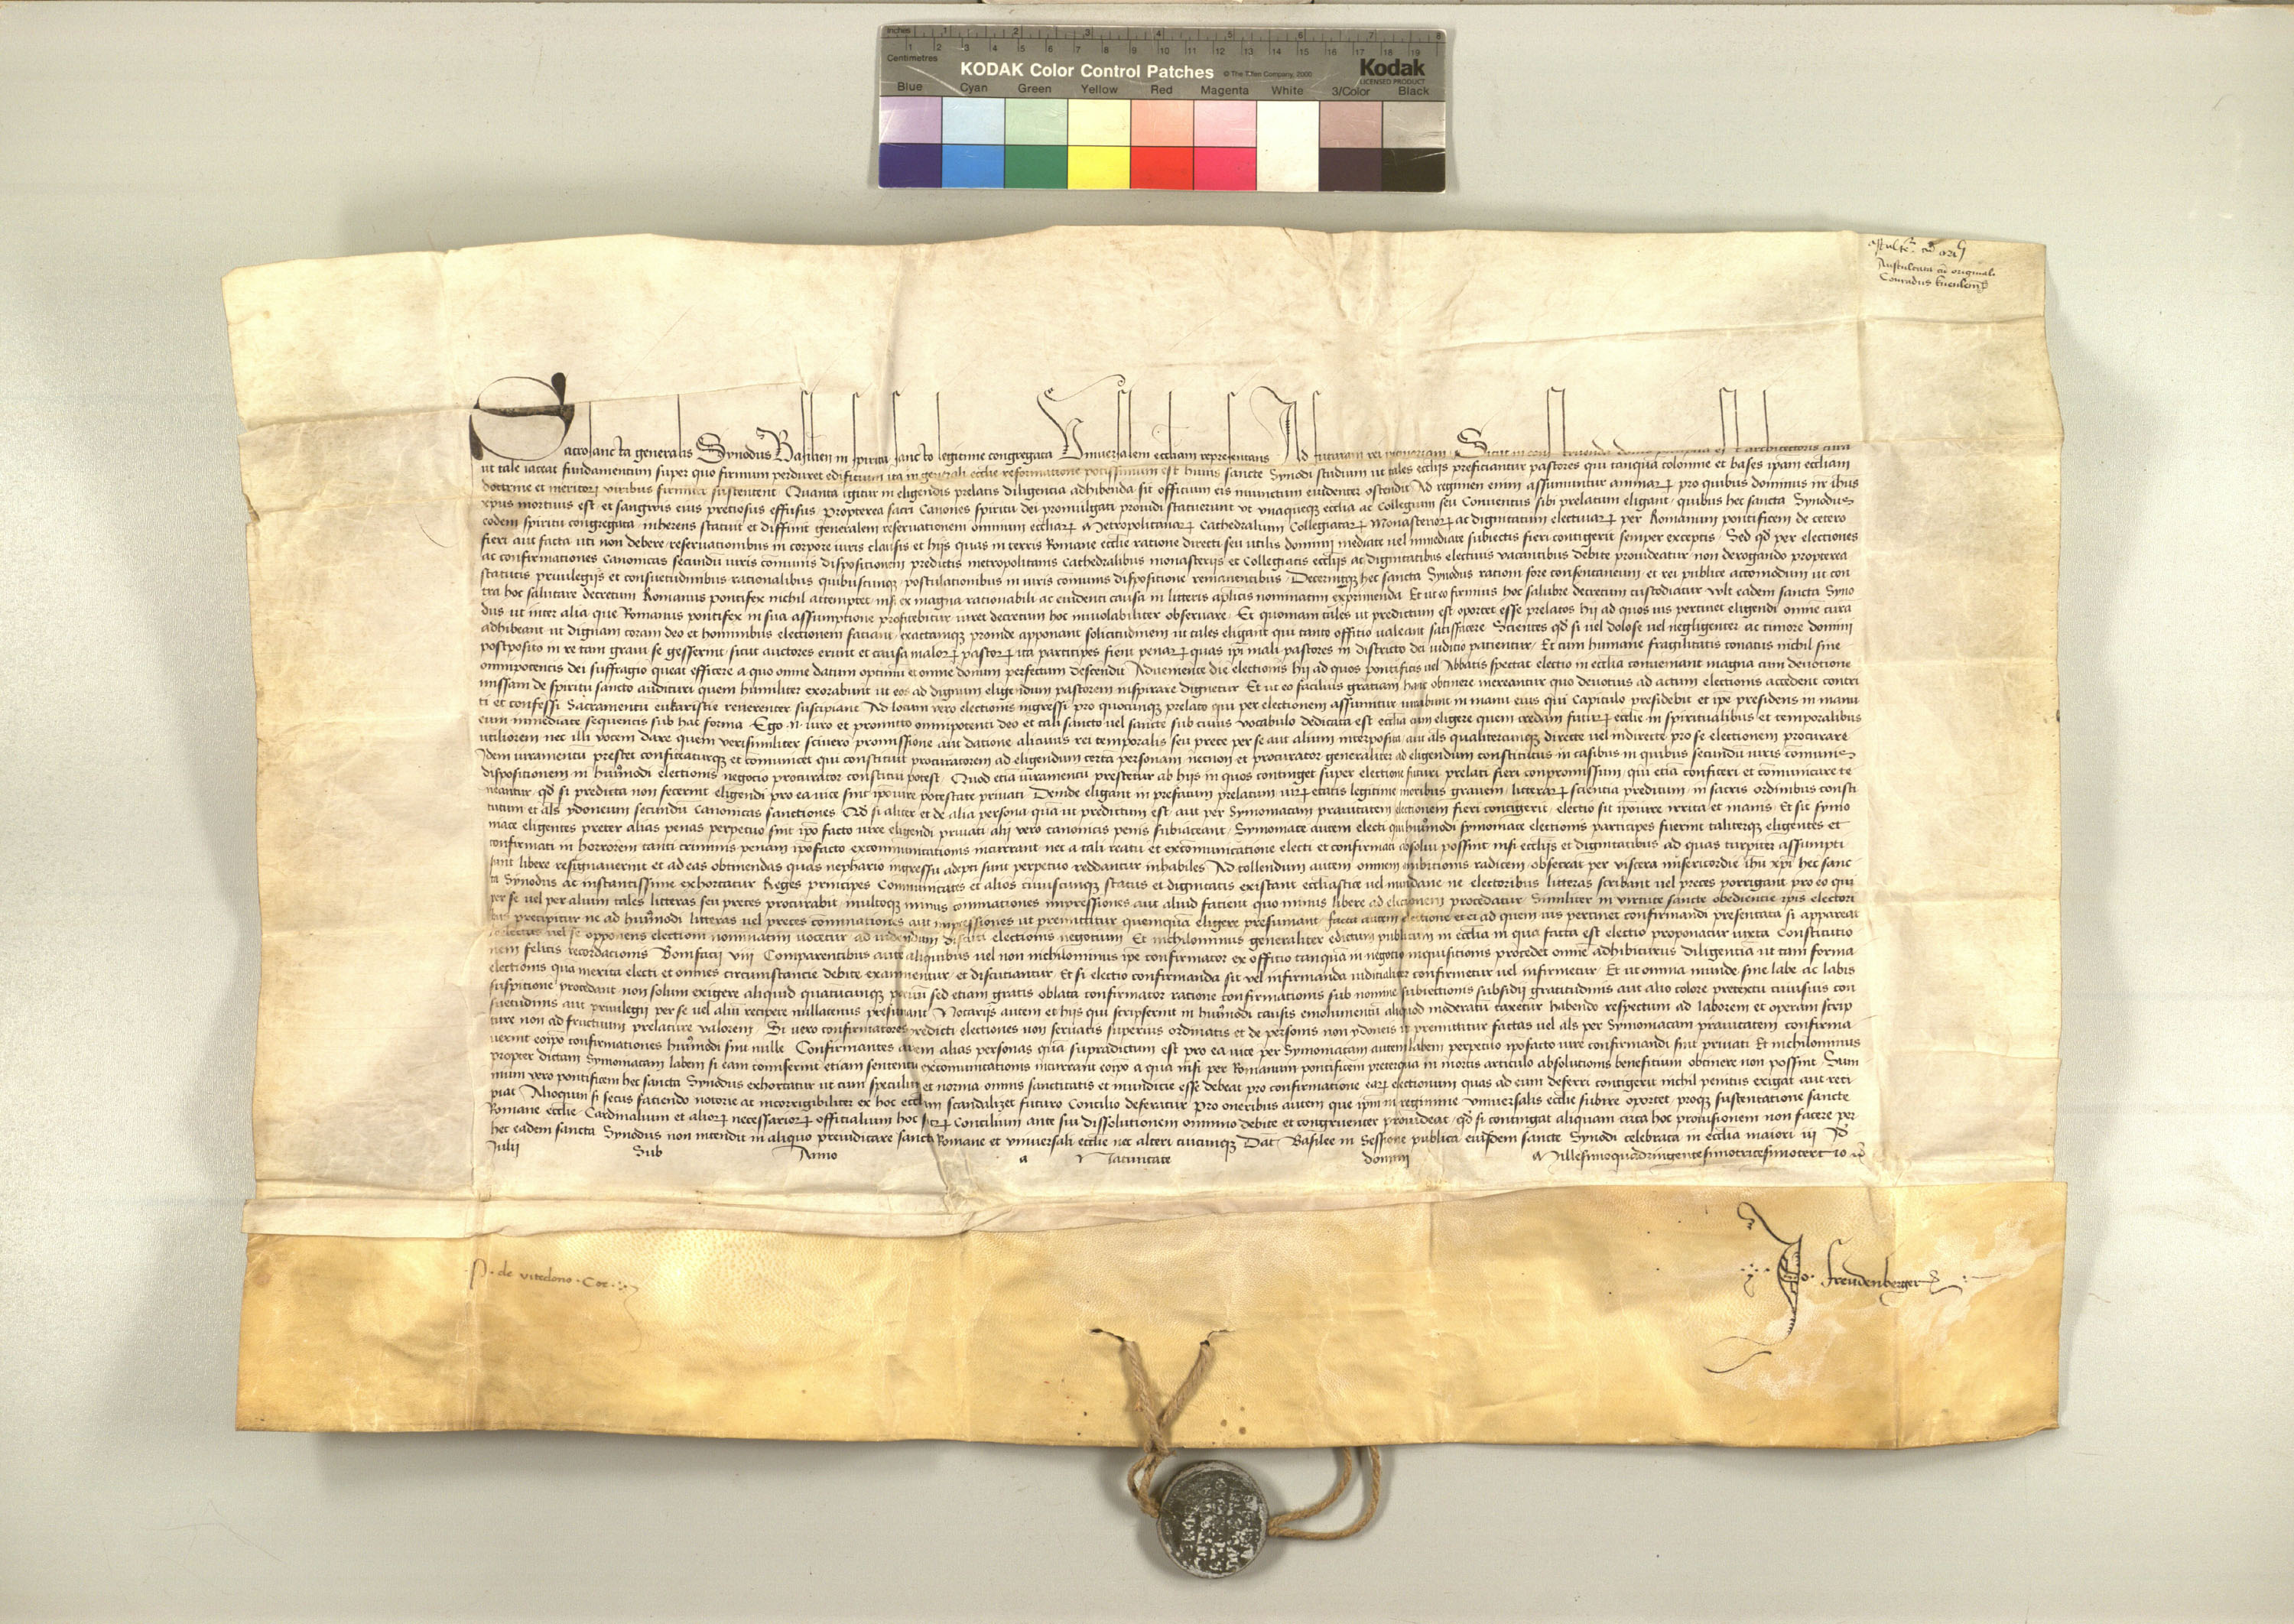 Inches 1 2 3 4 5 6 7 8
Centimetres 1 2 3 4 5 6 7 8 9 10 11 12 13 14 15 16 17 18 19
KODAK Color Control Patches © The Tiffen Company, 2000 Kodak
LICENSED PRODUCT
Blue Cyan Green Yellow Red Magenta White 3/Color Black
Auscultata cū originali
Conradus
Sacrosancta generalis Synodus Basilien in spiritu sancto legitime congregata Universalem eccliam representans Ad futuram rei memoriam Sicut in construenda domo et architectoris cura
ut tale iaceat fundamentum super quo firmum perduret edificium ita in generali ecclie reformatione potissimum est huius sancte Synodi studium ut tales ecclijs preficiantur pastores qui tanquā colomne et bases ipam eccliam
doctrine et meritoꝝ viribus firmiter sustentent Quanta igitur in eligendis prelatis diligencia adhibenda sit officium eis iniunctum evidenter ostendit Ad regimen enim assumuntur animarꝝ pro quibus dominus nr ihus
xpus mortuus est et sanguis eius preciosus effusus Propterea sacri Canones spiritu dei promulgati provide statuerunt ut unaqueqꝫ ecclia ac Collegium seu Conventus sibi prelatum eligant quibus hec sancta Synodus
eodem spiritu congregata inherens statuit et diffinit generalem reservationem omnium eccliarꝝ Metropolitanarꝝ Cathedralium Collegiatarꝝ Monasteriorꝝ ac dignitatum electivarꝝ per Romanum pontificem de cetero
fieri aut facta uti non debere reservationibus in corpore iuris clausis et hijs quas in terris Romane ecclie ratione directi seu utilis dominij mediate vel inmediate subiectis fieri contigerit semper exceptis Sed qd per electiones
ac confirmationes canonicas secundū iuris comunis dispositionem predictis metropolitanis Cathedralibus monasterijs et Collegiatis ecclijs ac dignitatibus electivis vacantibus debite provideatur non derogando propterea
statutis privilegijs et consuetudinibus rationabilibus quibuscunqꝫ postulationibus in iuris comunis dispositione remanentibus Decernitqꝫ hec sancta Synodus rationi fore consentaneum et rei publice accomodum ut con
tra hoc salutare decretum Romanus pontifex nichil attemptet nisi ex magna rationabili ac evidenti causa in litteris aplicis nominatim exprimenda Et ut eo firmius hoc salubre decretum custodiatur vult eadem sancta Syno
dus ut inter alia que Romanus pontifex in sua assumptione profitebitur iuret decretum hoc inviolabiliter observare Et quoniam tales ut predictum est oportet esse prelatos hij ad quos ius pertinet eligendi omnē cura
adhibeant ut dignam coram deo et hominibus electionem faciant exactamqꝫ proinde apponant solicitudinem ut tales eligant qui tanto officio valeant satisfacere Scientes qd si vel dolose vel negligenter ac timore domini
postposito in re tam gravi se gesserint sicut auctores erunt et causa malorꝝ pastorꝝ ita participes fient penarꝝ quas ipi mali pastores in districto dei iudicio patientur Et cum humane fragilitatis conatus nichil sine
omnipotentis dei suffragio queat efficere a quo omne datum optimū et omne donum perfectum descendit Adveniente die electionis hij ad quos pontificis vel Abbatis spectat electio in ecclia conveniant magna cum devotione
missam de spiritu sancto audituri quem humiliter exorabunt ut eos ad dignum eligendum pastorem inspirare dignetur Et ut eo facilius gratiam hanc obtinere mereantur quo devotius ad actum electionis accedent contri
ti et confessi Sacramentū eukaristie reverenter suscipiant Ad locum vero electionis ingressi pro quocunqꝫ prelato qui per electionem assumitur iurabunt in manu eius qui Capitulo presidebit et ipe presidens in manu
eum inmediate sequentis sub hac forma Ego N iuro et promitto omnipotenti deo et tali sancto vel sancte sub cuius vocabulo dedicata est ecclia eum eligere quem credam futurꝝ ecclie in spiritualibus et temporalibus
utiliorem nec illi vocem dare quem verisimiliter scivero promissione aut datione alicuius rei temporalis seu prece per se aut alium interposita aut als qualitercunqꝫ directe vel indirecte pro se electionem procurare
Idem iuramentū prestet confiteaturqꝫ et comunicet qui constituit procuratorem ad eligendum certā personam necnon et procurator generaliter ad eligendum constitutus in casibus in quibus secundū iuris comunis
dispositionem in huiꝰmodi electionis negocio procurator constitui potest Quod etiā iuramentū prestetur ab hijs in quos continget super electione futuri prelati fieri conpromissum qui etiā confiteri et comunicare te
neantur qd si predicta non fecerint eligendi pro ea vice sint ipo iure potestate privati Deinde eligant in prefatum prelatum virꝝ etatis legitime moribus gravem litterarꝝ scientia preditum in sacris ordinibus consti
tutum et als ydoneum secundū canonicas sanctiones Qd si aliter et de alia persona quā ut predictum est aut per Symoniacam pravitatem electionem fieri contigerit electio sit ipo iure irrita et inanis Et sic symo
niace eligentes preter alias penas perpetuo sint ipo facto iure eligendi privati alij vero canonicis penis subiaceant Symoniace autem electi qui huiꝰmodi symoniace electionis participes fuerint taliterqꝫ eligentes et
confirmati in horrorem tanti criminis penam ipo facto excommunicationis incurrant nec a tali reatu et excomunicatione electi et confirmati absolvi possint nisi ecclijs et dignitatibus ad quas turpiter assumpti
sunt libere resignaverint et ad eas obtinendas quas nephario ingressu adepti sunt perpetuo reddantur inhabiles Ad tollendum autem omnem ambitionis radicem obsecrat per viscera misericordie ihu xpi hec sanc
ta Synodus ac instantissime exhortatur Reges principes Communitates et alios cuiuscunqꝫ status et dignitatis existant ecclesiastice vel mundane ne electoribus litteras scribant vel preces porrigant pro eo qui
per se vel per alium tales litteras seu preces procurabit multoqꝫ minus comminationes impressiones aut aliud faciant quo minus libere ad electionem procedatur Similiter in virtute sancte obedientie ipis electori
bus precipitur ne ad huiꝰmodi litteras vel preces comminationes aut impressiones ut premittitur quemquā eligere presumant facta autem electione et ei ad quem ius pertinet confirmandi presentata si appareat
coelectus vel se opponens electioni nominatim vocetur ad videndum discuti electionis negotium Et nichilominus generaliter edictum publicum in ecclia in qua facta est electio proponatur iuxta Constitutio
nem felicis recordationis Bonifacij viij Comparentibus autē aliquibus vel non nichilominus ipe confirmator ex officio tanquā in negotio inquisitionis procedet omnē adhibiturus diligentiā ut tam forma
electionis qua merita electi et omnes circumstantie debite examinentur et discutiantur Et si electio confirmanda sit vel infirmanda iudicialiter confirmetur vel infirmetur Et ut omnia munde sine labe ac labis
suspitione procedant non solum exigere aliquid quantūcunqꝫ parvū sed etiam gratis oblata confirmator ratione confirmationis sub nomine subiectionis subsidij gratitudinis aut alio colore pretextu cuiusvis con
suetudinis aut privilegij per se vel aliū recipere nullatenus presumant Notarijs autem et hijs qui scripserint in huiꝰmodi causis emolumentū aliquod moderatū taxetur habendo respectum ad laborem et operam scrip
ture non ad fructuum prelature valorem Si vero confirmatores predicti electiones non servatis superius ordinatis et de personis non ydoneis ut premittitur factas vel als per Symoniacam pravitatem confirma
verint eoipo confirmationes huiꝰmodi sint nulle Confirmantes autem alias personas quā supradictum est pro ea vice per Symoniacam autem labem perpetuo ipo facto iure confirmandi sint privati Et nichilominus
propter dictam Symoniacam labem si eam comiserint etiam sententiā excomunicationis incurrant eoipo a qua nisi per Romanum pontificem preterquā in mortis articulo absolutionis beneficium obtinere non possint Sum
mum vero pontificem hec sancta Synodus exhortatur ut cum speculum et norma omnis sanctitatis et mundicie esse debeat pro confirmatione earꝝ electionum quas ad eum deferri contigerit nichil penitus exigat aut reci
piat Alioquin si secus faciendo notorie ac incorrigibiliter ex hoc eccliam scandalizet futuro Concilio deferatur Pro oneribus autem que ipm in regimine universalis ecclie subire oportet proqꝫ sustentatione sancte
Romane ecclie Cardinalium et aliorꝝ necessariorꝝ officialium hoc sacrꝝ Concilium ante sui dissolutionem omnino debite et congruenter providebit qd si contingat aliquam circa hoc provisionem non facere per
hec eadem sancta Synodus non intendit in aliquo preiudicare sancte Romane et universali ecclie nec alteri cuicunqꝫ Dat Basilee in Sessione publica eiusdem sancte Synodi celebrata in ecclia maiori iij Id
Julij Sub Anno a Nativitate domini Millesimoquadringentesimotricesimotertio
P. de vitedono Cor
Jo. Freudenberger